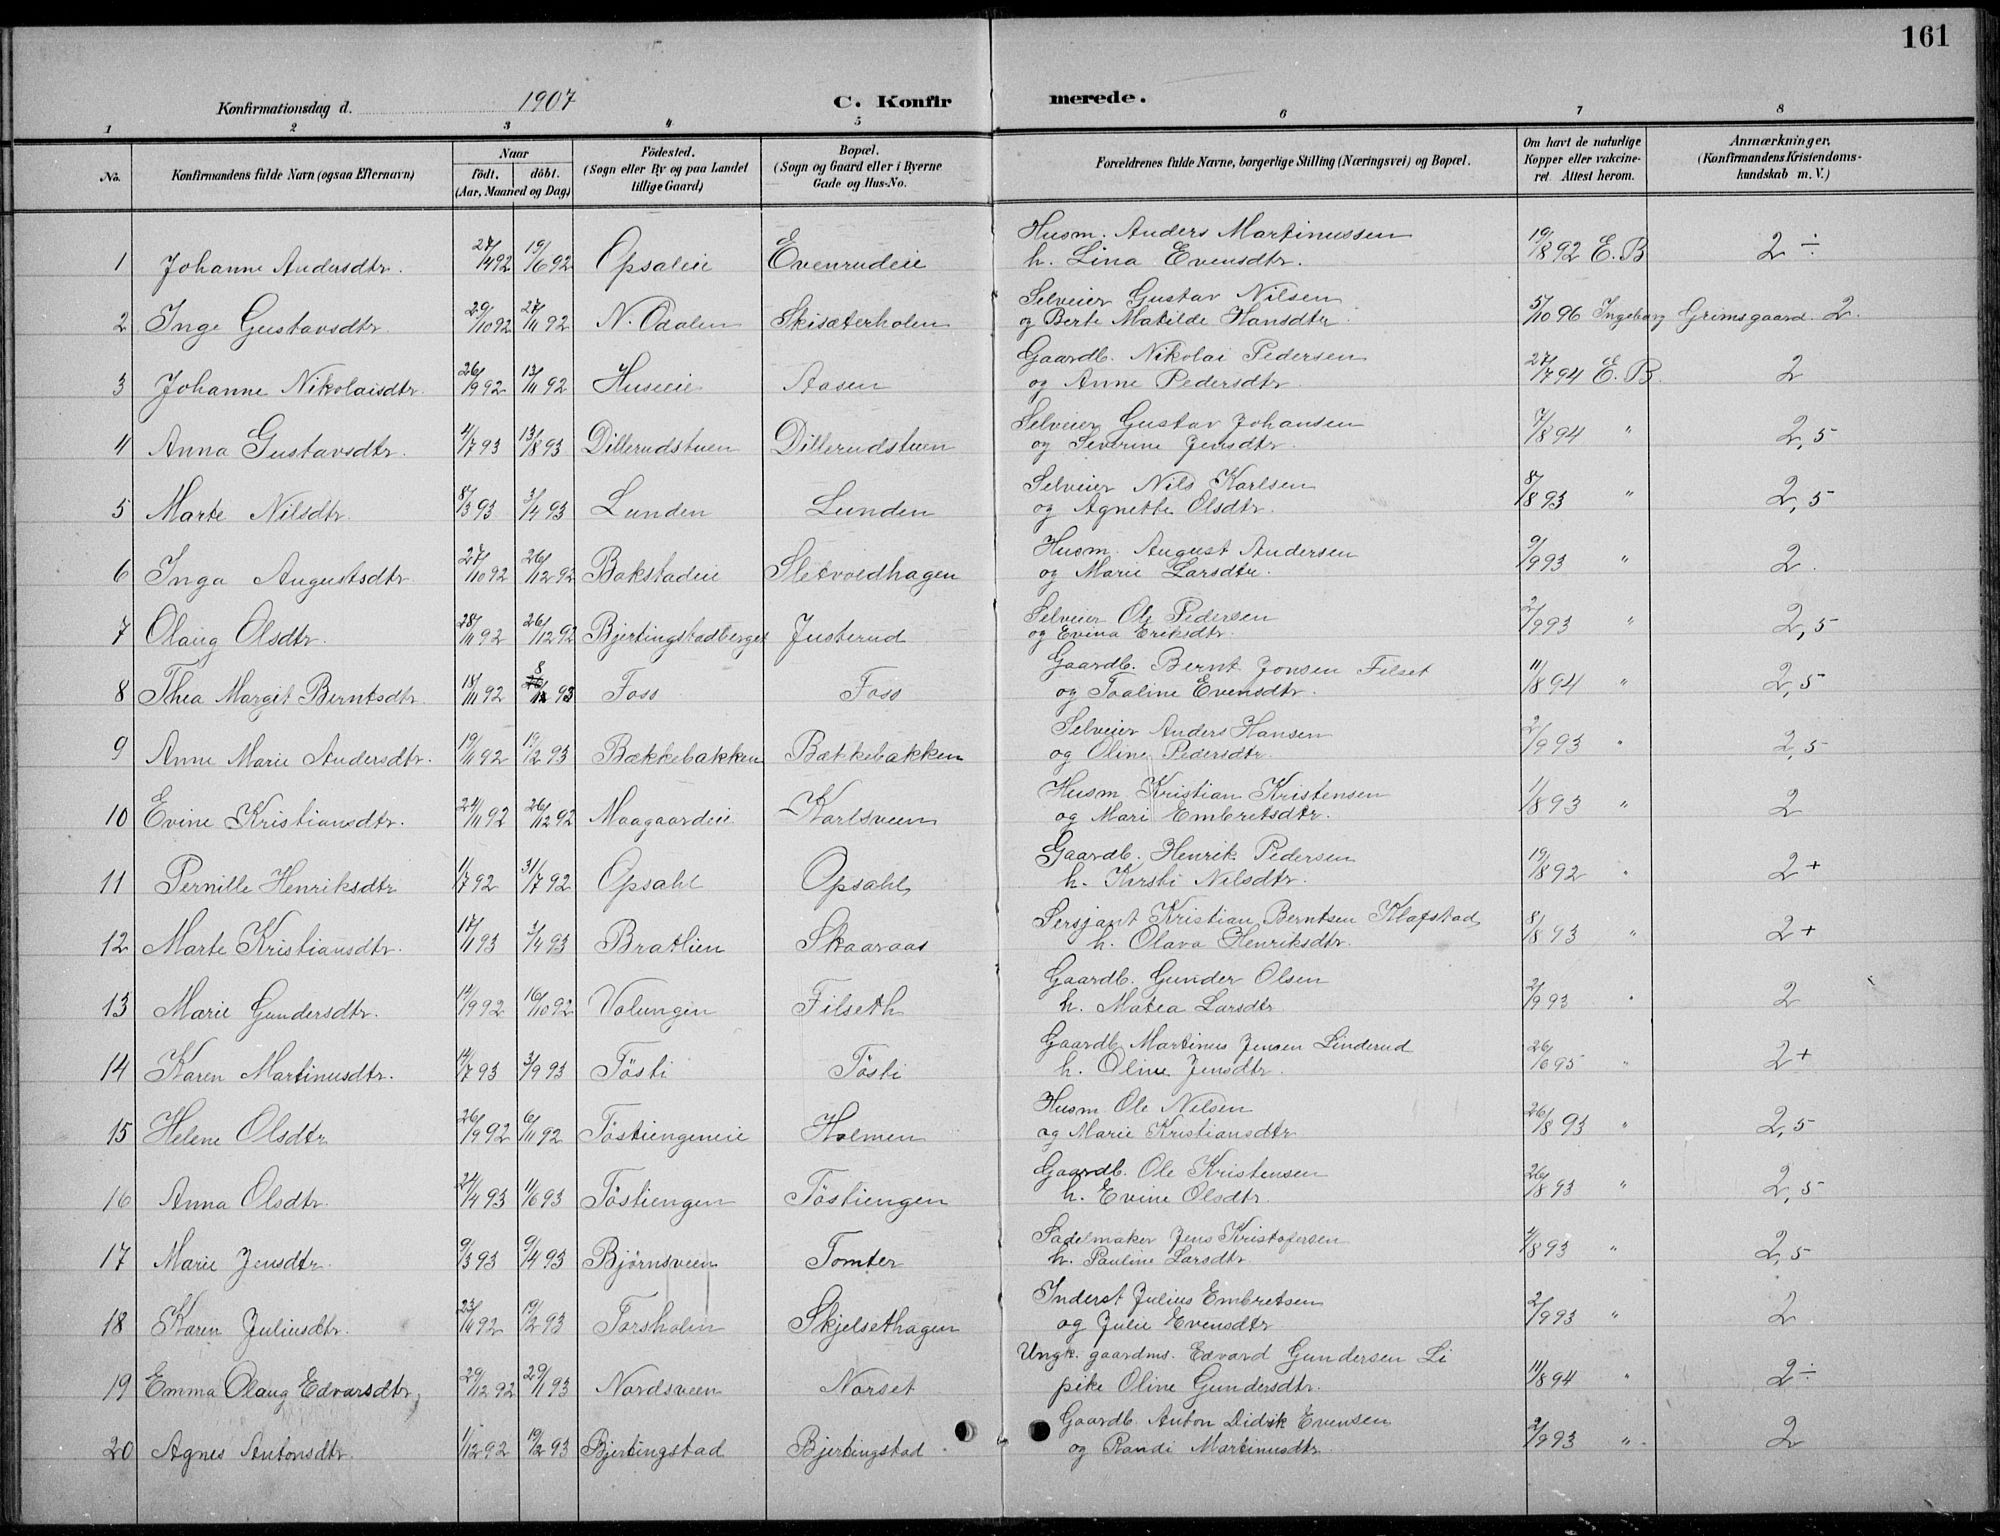 161
Konfirmationsdag d. 1907 C. Konfirmerede.
1 2 3 4 5 6 7 8
No. Konfirmandens fulde Navn (ogsaa Efternavn) Naar født. døbt. (Aar, Maaned og Dag) Fødested. (Sogn eller By og paa Landet tillige Gaard) Bopæl. (Sogn og Gaard eller i Byerne Gade og Hus-No. Forældrenes fulde Navne, borgerlige Stilling (Næringsvei) og Bopæl. Om havt de naturlige Kopper eller vakcineret. Attest herom. Anmærkninger, (Konfirmandens Kristendomskundskab m. V.)
1 Johanne Andersdtr. 27/4 92 19/6 92 Opsaleie Evenrudeie Husm. Anders Martinussen 19/8 92 E. B 2 ÷
h. Lina Evensdtr.
2 Inge Gustavsdtr 29/10 92 27/11 92 N. Odalen Skisæterholen Selveier Gustav Nilsen 5/10 96 Ingeborg Grimsgaard 2.
og Berte Matilde Hansdtr.
3 Johanne Nikolaisdtr. 26/9 92 13/11 92 Huseie Aasen Gaardb. Nikolai Pedersen 27/7 94 E. B. 2
og Anne Pedersdtr.
4 Anna Gustavsdtr. 4/7 93 13/8 93 Dillerudstuen Dillerudstuen Selveier Gustav Johansen 7/8 94 " 2,5
og Severine Jensdtr.
5 Marte Nilsdtr. 8/3 93 3/4 93 Lunden Lunden Selveier Nils Karlsen 8/8 93 " 2,5
og Agnette Olsdtr.
6 Inga Augustsdtr 27/10 92 26/12 92 Bakstadeie Sletvoldhagen Husm. August Andersen 9/9 93 " 2.
og Marie Larsdtr.
7 Olaug Olsdtr. 28/11 92 26/12 92 Bjertingstadberget Justerud Selveier Ole Pedersen 2/9 93 " 2,5
og Evina Eriksdtr.
8 Thea Margit Berntsdtr. 18/11 92 8/1 93 Foss Foss Gaardb. Bernt Jonsen Filset 11/8 94 " 2,5
og Toaline Evensdtr.
9 Anne Marie Andersdtr. 19/11 92 19/2 93 Bækkebakken Bækkebakken Selveier Anders Hansen 2/9 93 " 2,5
og Oline Pedersdtr.
10 Evine Kristiansdtr. 24/11 92 26/12 92 Maagaardeie Karlsveen Husm Kristian Kristensen 1/8 93 " 2
og Mari Embretsdtr.
11 Pernille Henriksdtr 1/7 92 31/7 92 Opsahl Opsahl Gaardb. Henrik Pedersen 19/8 92 " 2+
h. Kirsti Nilsdtr.
12 Marte Kristiansdtr. 17/1 93 3/4 93 Bratlien Skaaraas Sersjant Kristian Berntsen Klafstad 8/8 93 " 2+
h. Olava Henriksdtr.
13 Marie Gundersdtr. 14/9 92 16/10 92 Valungen Filseth Gaardb. Gunder Olsen 2/9 93 " 2
h. Matea Larsdtr
14 Karen Martinusdtr. 14/7 93 3/9 93 Tösti Tösti Gaardb. Martinus Jensen Linderud 26/6 95 " 2+
h. Oline Jensdtr.
15 Helene Olsdtr 26/9 92 6/11 92 Töstiengeneie Holmen Husm Ole Nilsen 26/8 93 " 2,5
og Marie Kristiansdtr
16 Anna Olsdtr. 24/4 93 11/6 93 Töstiengen Töstiengen Gaardb. Ole Kristensen 26/8 93 " 2,5
h. Evine Olsdtr.
17 Marie Jensdtr. 9/3 93 9/4 93 Bjørnsveen Tomter Sadelmaker Jens Kristofersen 4/8 93 " 2,5
h. Pauline Larsdtr.
18 Karen Juliusdtr. 23/11 92 19/2 93 Torsholen Skjelsethagen Inderst Julius Embretsen 2/9 93 " 2
og Julie Evensdtr
19 Emma Olaug Edvarsdtr. 29/12 92 29/1 93 Nordsveen Norset Ungk. gaardms. Edvard Gundersen Li 11/8 94 " 2÷
pike Oline Gundersdtr.
20 Agnes Antonsdtr. 1/12 92 19/2 93 Bjertingstad Bjertingstad Gaardb. Anton Didrik Evensen 2/9 93 " 2
og Randi Martinusdtr.